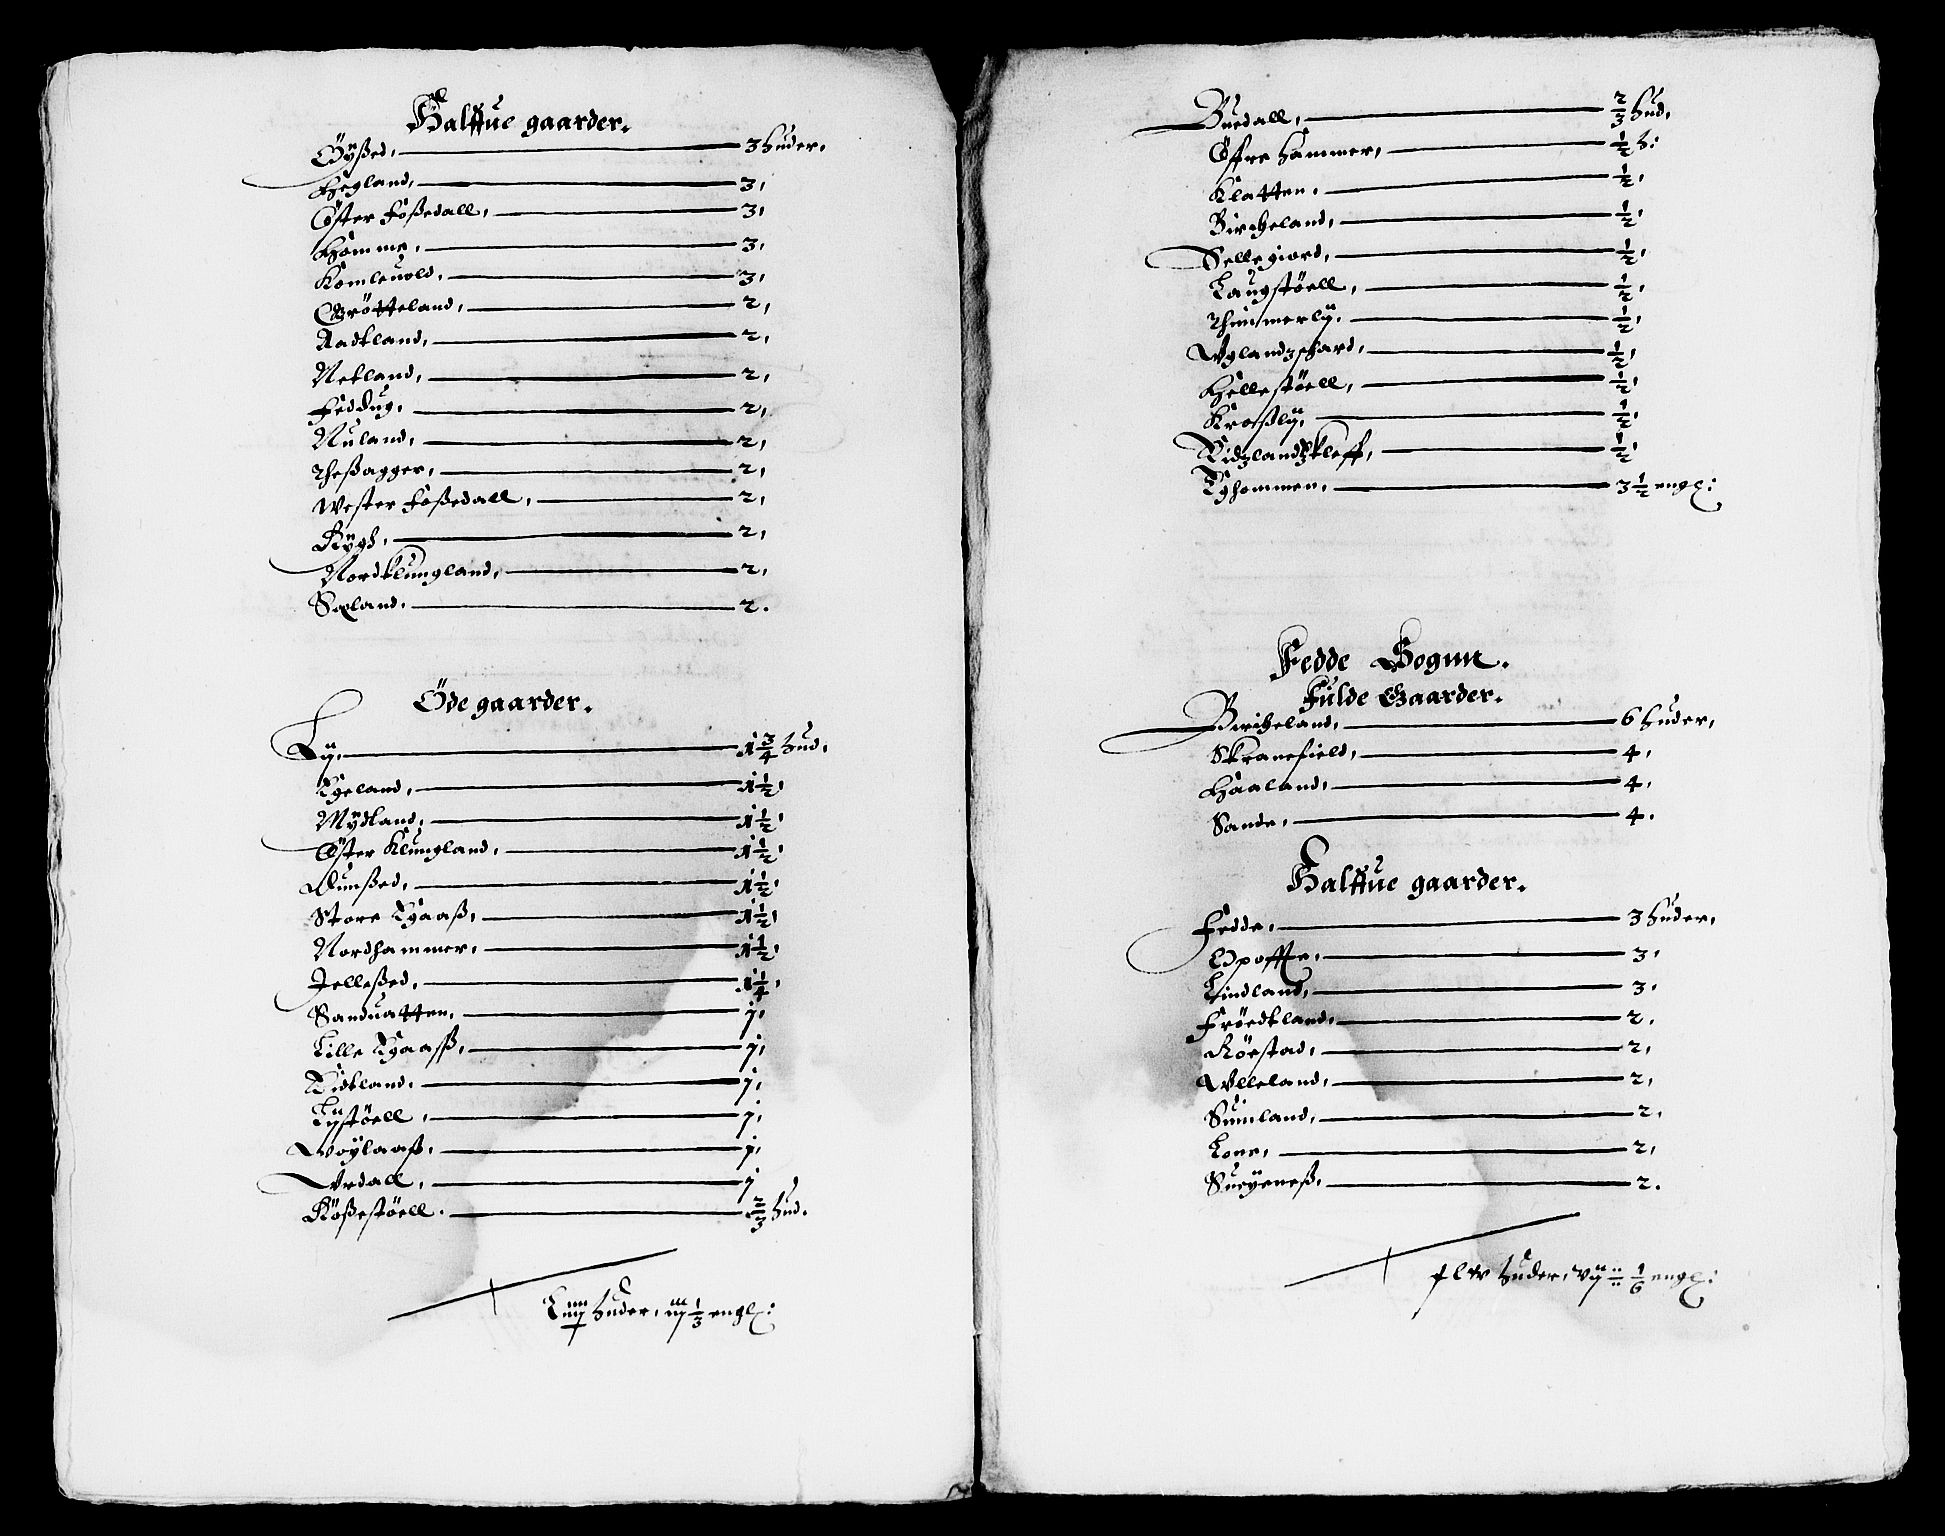 Halffue gaarder.
Öyßed, 3 huder,
Hegland, 3,
Öster Foßedall, 3,
Homme, 3,
Komleuold, 3,
Grötteland, 2,
Aadland, 2,
Netland, 2,
Feddug, 2,
Nuland, 2,
Theßagger, 2,
Wester Foßedall, 2,
Rÿgh, 2,
Nordklungland, 2,
Sæland, 2.
Öde gaarder.
Lÿ, 1 3/4 hud,
Egeland, 1 1/2,
Mÿdland, 1 1/2,
Öster Klungland, 1 1/2,
Dunßed, 1 1/2,
Store Egaaß, 1 1/2,
Nordhammer, 1 1/2,
Jelleßed, 1 1/4,
Sanduatten, j,
Lille Egaaß, j,
Eidland, j,
Lystöell, j,
Woÿlaaß, j,
Vrdall, j
Rößestöell. 2/3 hud.
huder, 1/3 engl:
Buedall, 2/3 hud,
Öffre hammer, 1/2 h:
Klatten, 1/2,
Bircheland, 1/2,
Sellegiord, 1/2,
Laugstöell, 1/2,
Thimmerlÿ, 1/2,
Wglandzschard, 1/2,
Hellestöell, 1/2,
Kroßlÿ, 1/2,
Eidzlandzkleff, 1/2,
Tghommen, 3 1/2 engl:
Fedde Sognn.
Fulde Gaarder.
Bircheland, 6 huder,
Skranefield, 4,
Haaland, 4,
Sande, 4.
Halffue gaarder.
Fedde, 3 huder,
Opofftte, 3,
Lindland, 3,
Fröedland, 2,
Röestad, 2,
Vlleland, 2,
Suinland, 2,
Lone, 2,
Sueÿeneß, 2.
huder, 1/6 engl: